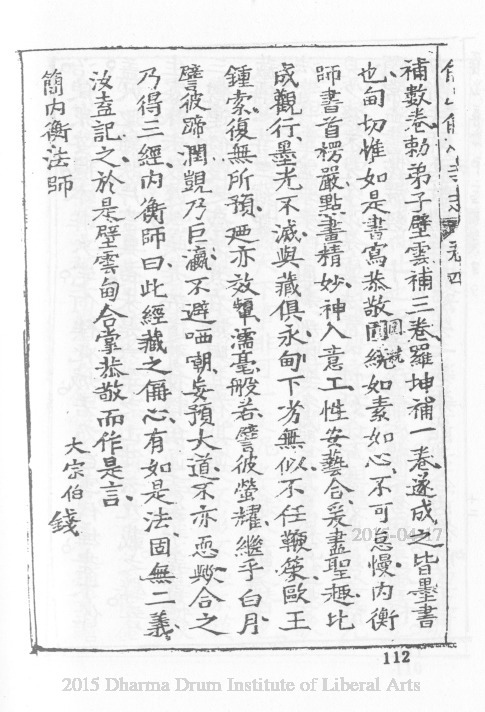 卷四
補數卷、勑弟子壁雲補三卷羅坤補一卷遂成之皆墨書
也甸切惟如是書寫恭敬圍繞如素如心、不可怠慢內衡
圍繞
師書首楞嚴點畫精妙、神入意工、性安藝合、爰盡聖趣比
成觀行、墨光不滅、與藏俱永、甸下劣無似、不任鞭箠、歐王
鍾索、復無所預、廼亦效顰濡毫般若、譬彼螢耀、繼乎白月、
譬彼蹄潤、覬乃巨瀛、不避哂嘲、妄預大道、不亦恧歟、合之
乃得三經、內衡師曰、此經藏之心、有如是法、固無二義、
汝盍記之、於是壁雲甸合掌恭敬而作是言、
大宗伯錢
簡內衡法師
112
2015 Dharma Drum Institute of Liberal Arts